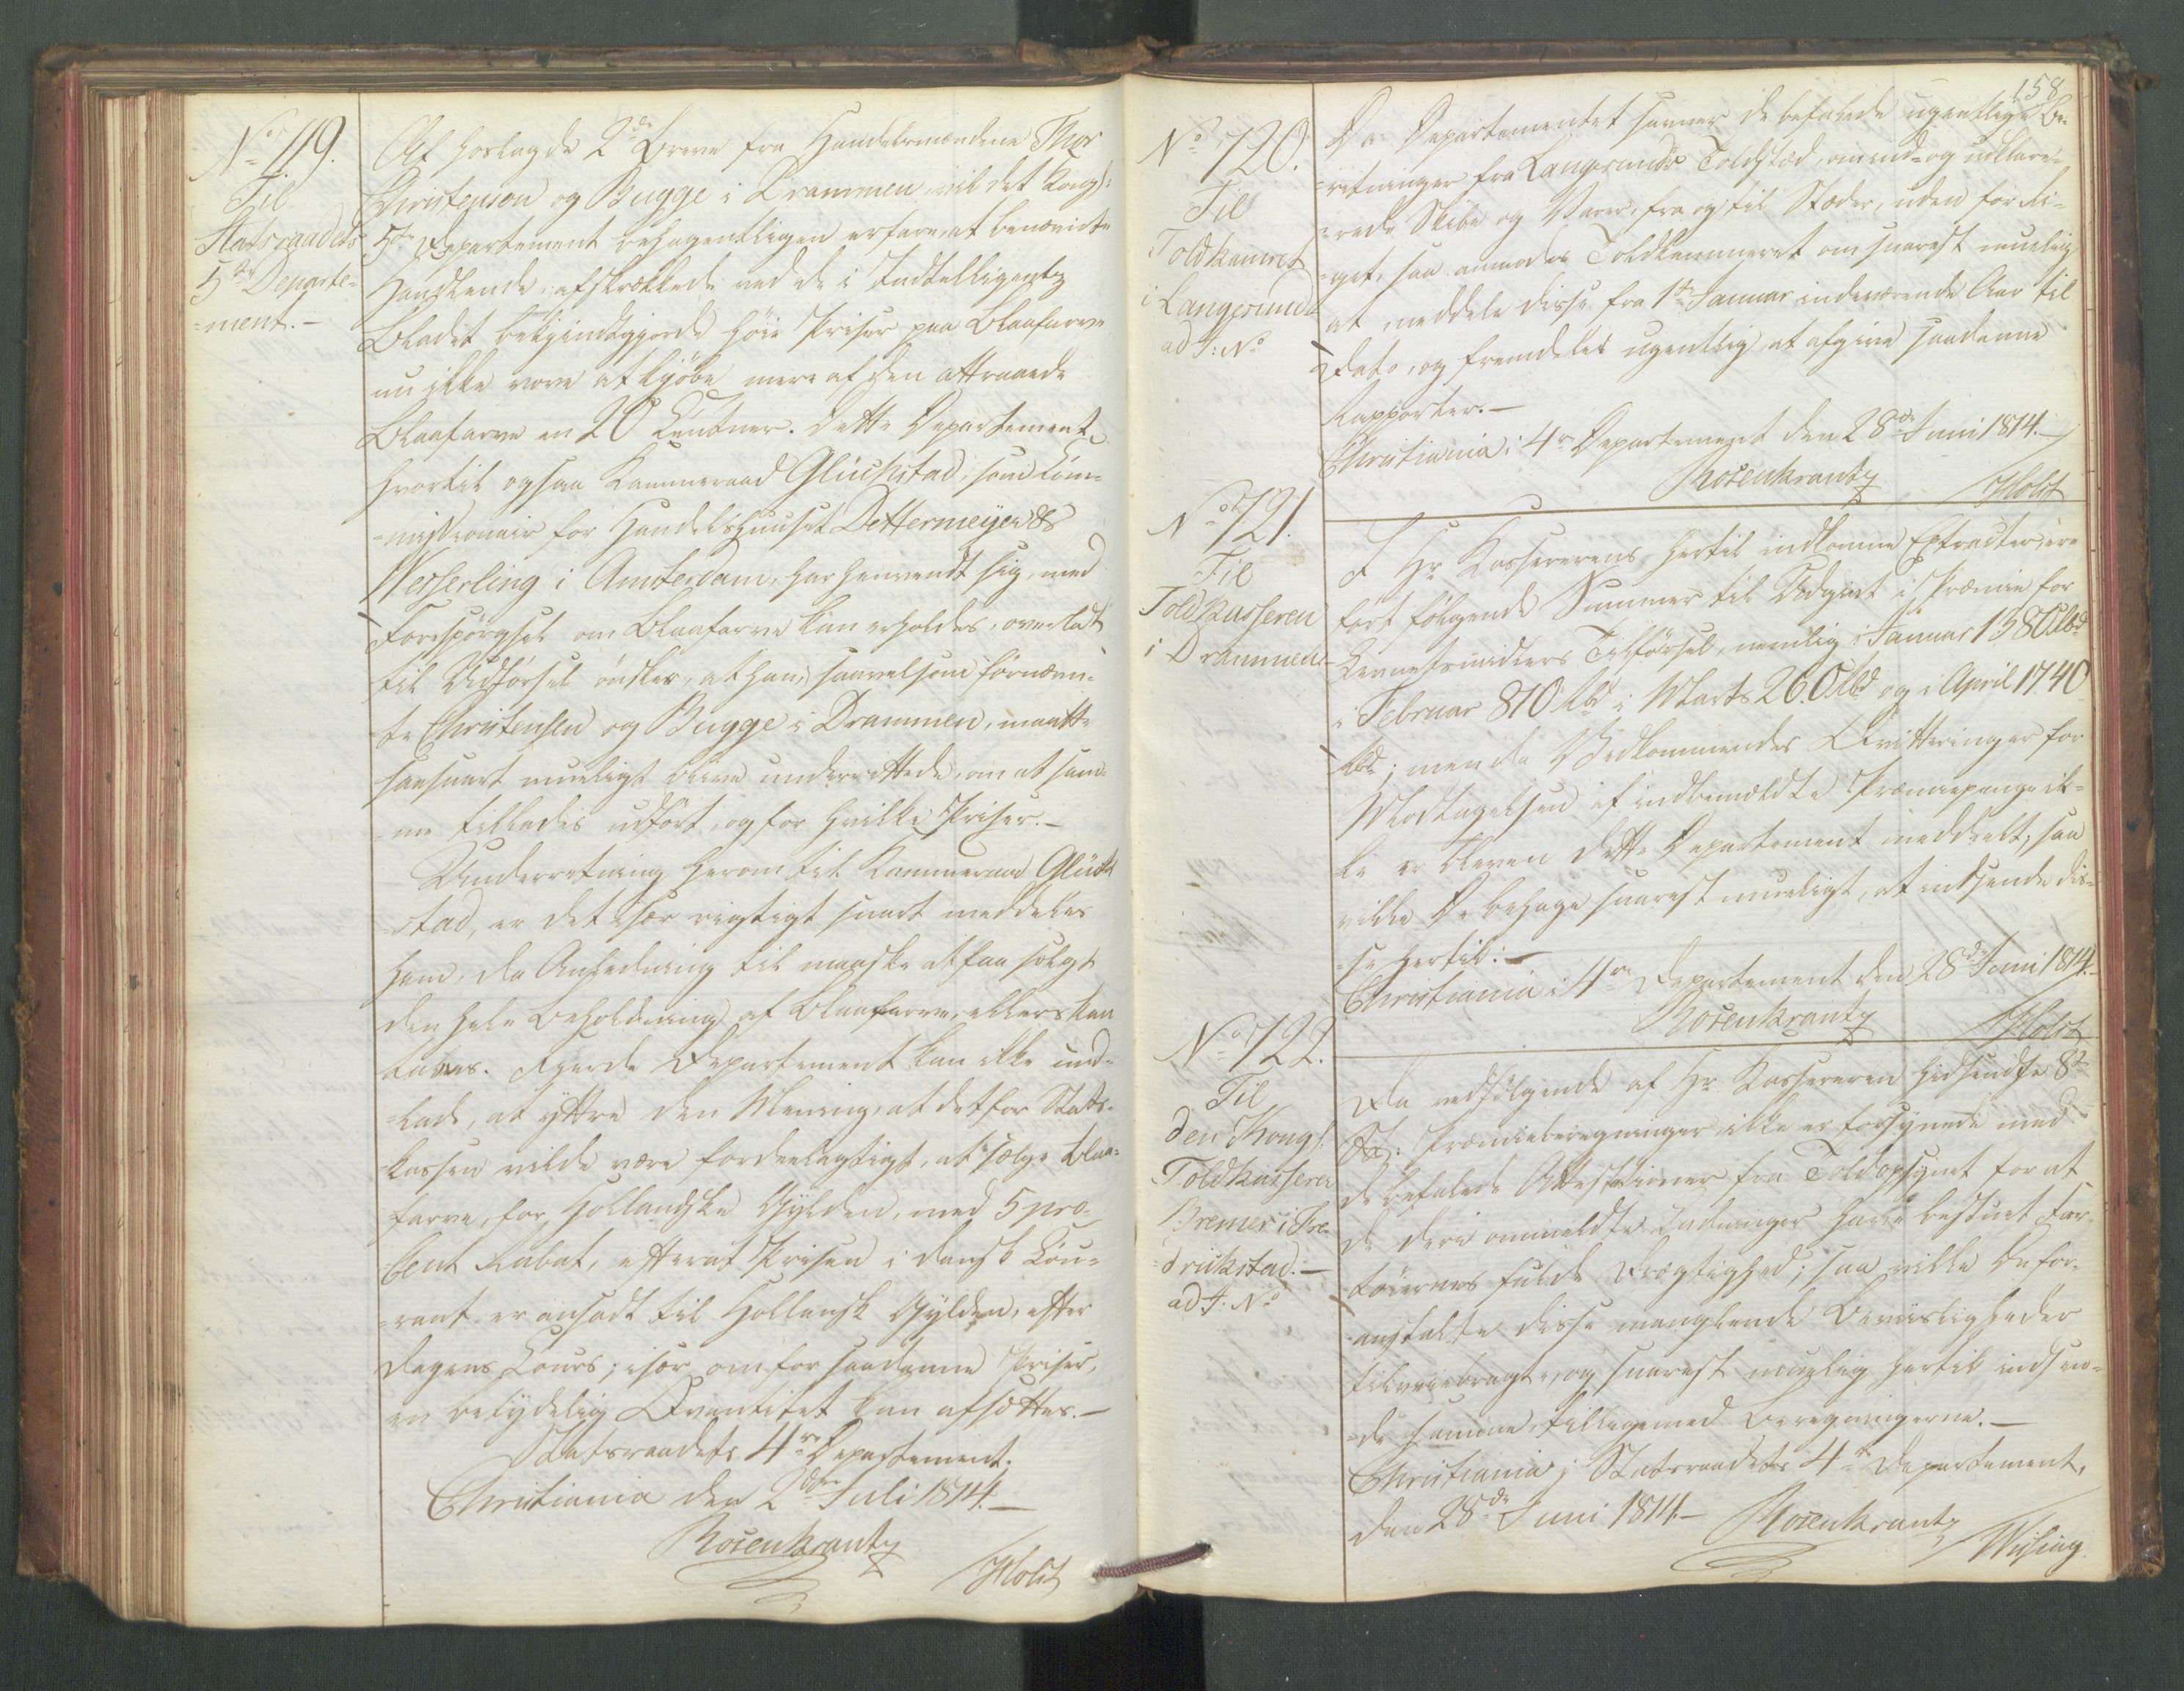 No 119.
Til
Statsraadets
5te Departe-
-ment.-
Af hoslagde 2de Breve fra Handelsmændene Thor
Christenson og Bugge i Drammen vil det Kongl:
5te Departement behageligen erfare, at benævnte
Handlende, afskrækkede ved de i Indtelligentz
Bladet bekjendtgjorde høie Priser paa Blaafarve
nu ikke vove at kjøbe mere af den attraaede
Blaafarve en 20 Centner. Dette Departement,
hvortil ogsaa Kammeraad Glückstad, som Com-
-missionair for Handelshuuset Dettermeyer &
Wesserling i Amsterdam, har henvendt sig, med
Forespørgsel om Blaafarve kan erholdes, overladt
til Udførsel ønsker, at han, saavelsom førnævn-
-te Christensen og Bugge i Drammen, maatte
saasnart mueligt blive underrettede, om at sam-
-me tillades udført, og for hvilke Priser.-
Underretning herom til Kammeraad Glück
-stad, er det især vigtigt snart meddeles
ham, da Anledning til maaske at faa solgt
den hele Beholdning af Blaafarve, ellers kan
tabes. Fjerde Departement kan ikke und-
-lade, at yttre den Mening, at det for Stats-
-kassen vilde være fordeelagtigt, at sælge Blaa-
farve, for Hollandske Gylden, med 5 pro-
Cent Rabat, efterat Prisen i dansk Cou-
-rant er ansadt til Hollansk Gylden, efter
Dagens Cours; især om for saadanne Priser,
en betydelig Qvantitet kan afsættes.-
Statsraadets 4de Departement.
Christiania den 2den Juli 1814.-
Rosenkrantz
Holst
158
No 120.
Til
Toldkamret
i Langesund
ad J: No
Da Departementet savner de befalede ugentlige Be-
-retninger fra Langesunds Toldsted, om ind- og udklare-
-rede Skibe og Varer, fra og til Stæder, uden for Ri-
-get, saa anmodes Toldkammeret om snarest muelig
at meddele disse fra 1ste Januar indeværende Aar til
Dato, og fremdeles ugentlig at afgive saadanne
Rapporter.-
Christiania i 4de Departementet den 28de Juni 1814.-
Rosenkrantz
Holst
No 121.
Til
Toldkasseren
i Drammen
I Hr Kassererens hertil indkomne Extracter, ere
ført følgende Summer til Udgivt i Præmie for
Levnetsmidlers Tilførsel, nemlig i Januar 1380 Rbd
i Februar 810 Rbd i Marts 260 Rbd og i April 1740
Rbd; men da Vedkommendes Qvitteringer for
Modtagelsen af indbemeldte Præmiepenge ik-
ke er bleven dette Departement meddeelt, saa
ville De behage snarest mueligt, at indsende dis-
se hertil.-
Christiania i 4de Departement den 28de Juni 1814.-
Rosenkrantz
Holst
No 122.
Til
den Kongl.
Toldkasserer
Bremer i Fre-
-drikstad.-
ad J: No
Da vedfølgende af Hr Kassereren hidsendte 8te
St: Præmieberegninger ikke er forsynede med
de befalede Attestationer fra Toldopsynet for at
de deri ommeldte Ladninger have bestuet Far-
-tøiernes fulde Drægtighed; saa ville De for-
-anstalte disse manglende Beviisligheder
tilveiebragt, og snarest muelig hertil indsen-
-de samme, tilligemed Beregningerne.-
Christiania i Statsraadets 4de Departement,
den 28de Juni 1814.- Rosenkrantz
Wising